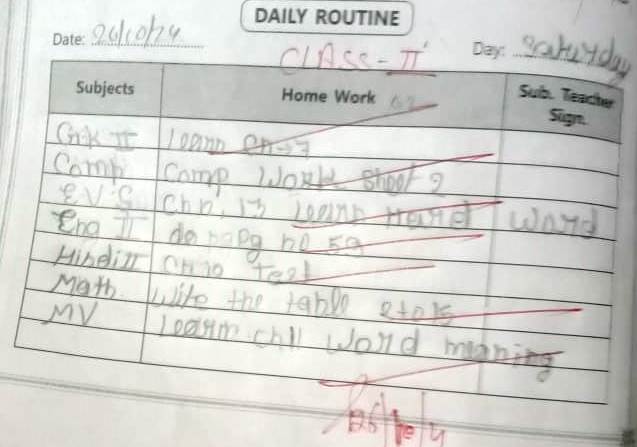 DAILY ROUTINE
Date: 26/10/24 Day: Saturday
CLASS-II
Subjects Home Work Sub. Teacher Sign.
G.K II learn Ch-7
Comp Comp Work Sheet 2
E.V.S Ch n. 13 learn Hard Word
Eng II do pg no 59
Hindi II Ch 10 Test
Math Write the table 2 to 15
MV learn. ch 11 word meaning
26/10/4